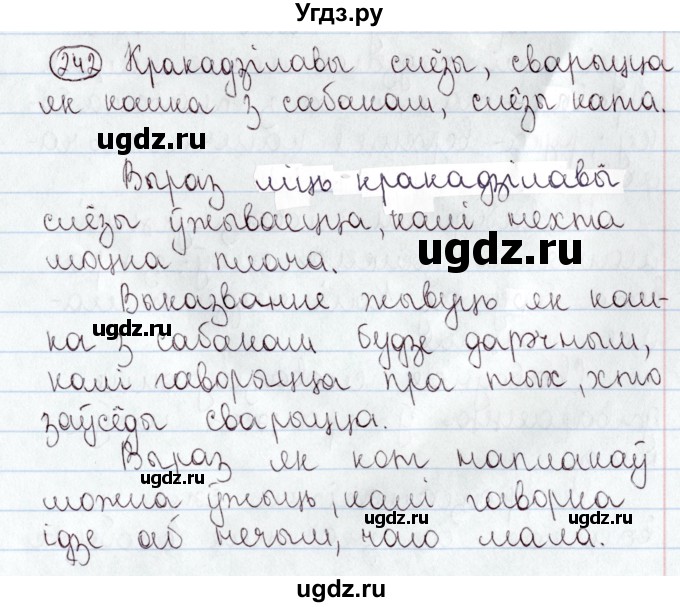 Угдз.ру
242 Кракадзілавы слёзы, сварыцца
як кошка з сабакам, слёзы ката.
ugdz.ru
Выраз ліць кракадзілавы
слёзы ўжываецца, калі нехта
ugdz.ru
моцна плача.
Выказванне жывуць як кош-
ugdz.ru
ка з сабакам будзе дарэчным,
калі гаворыцца пра тых, хто
заўсёды сварыцца.
Выраз як кот наплакаў
можна ўжыць, калі гаворка
ugdz.ru ugdz.ru
ідзе аб нечым, чаго мала.
ugdz.ru